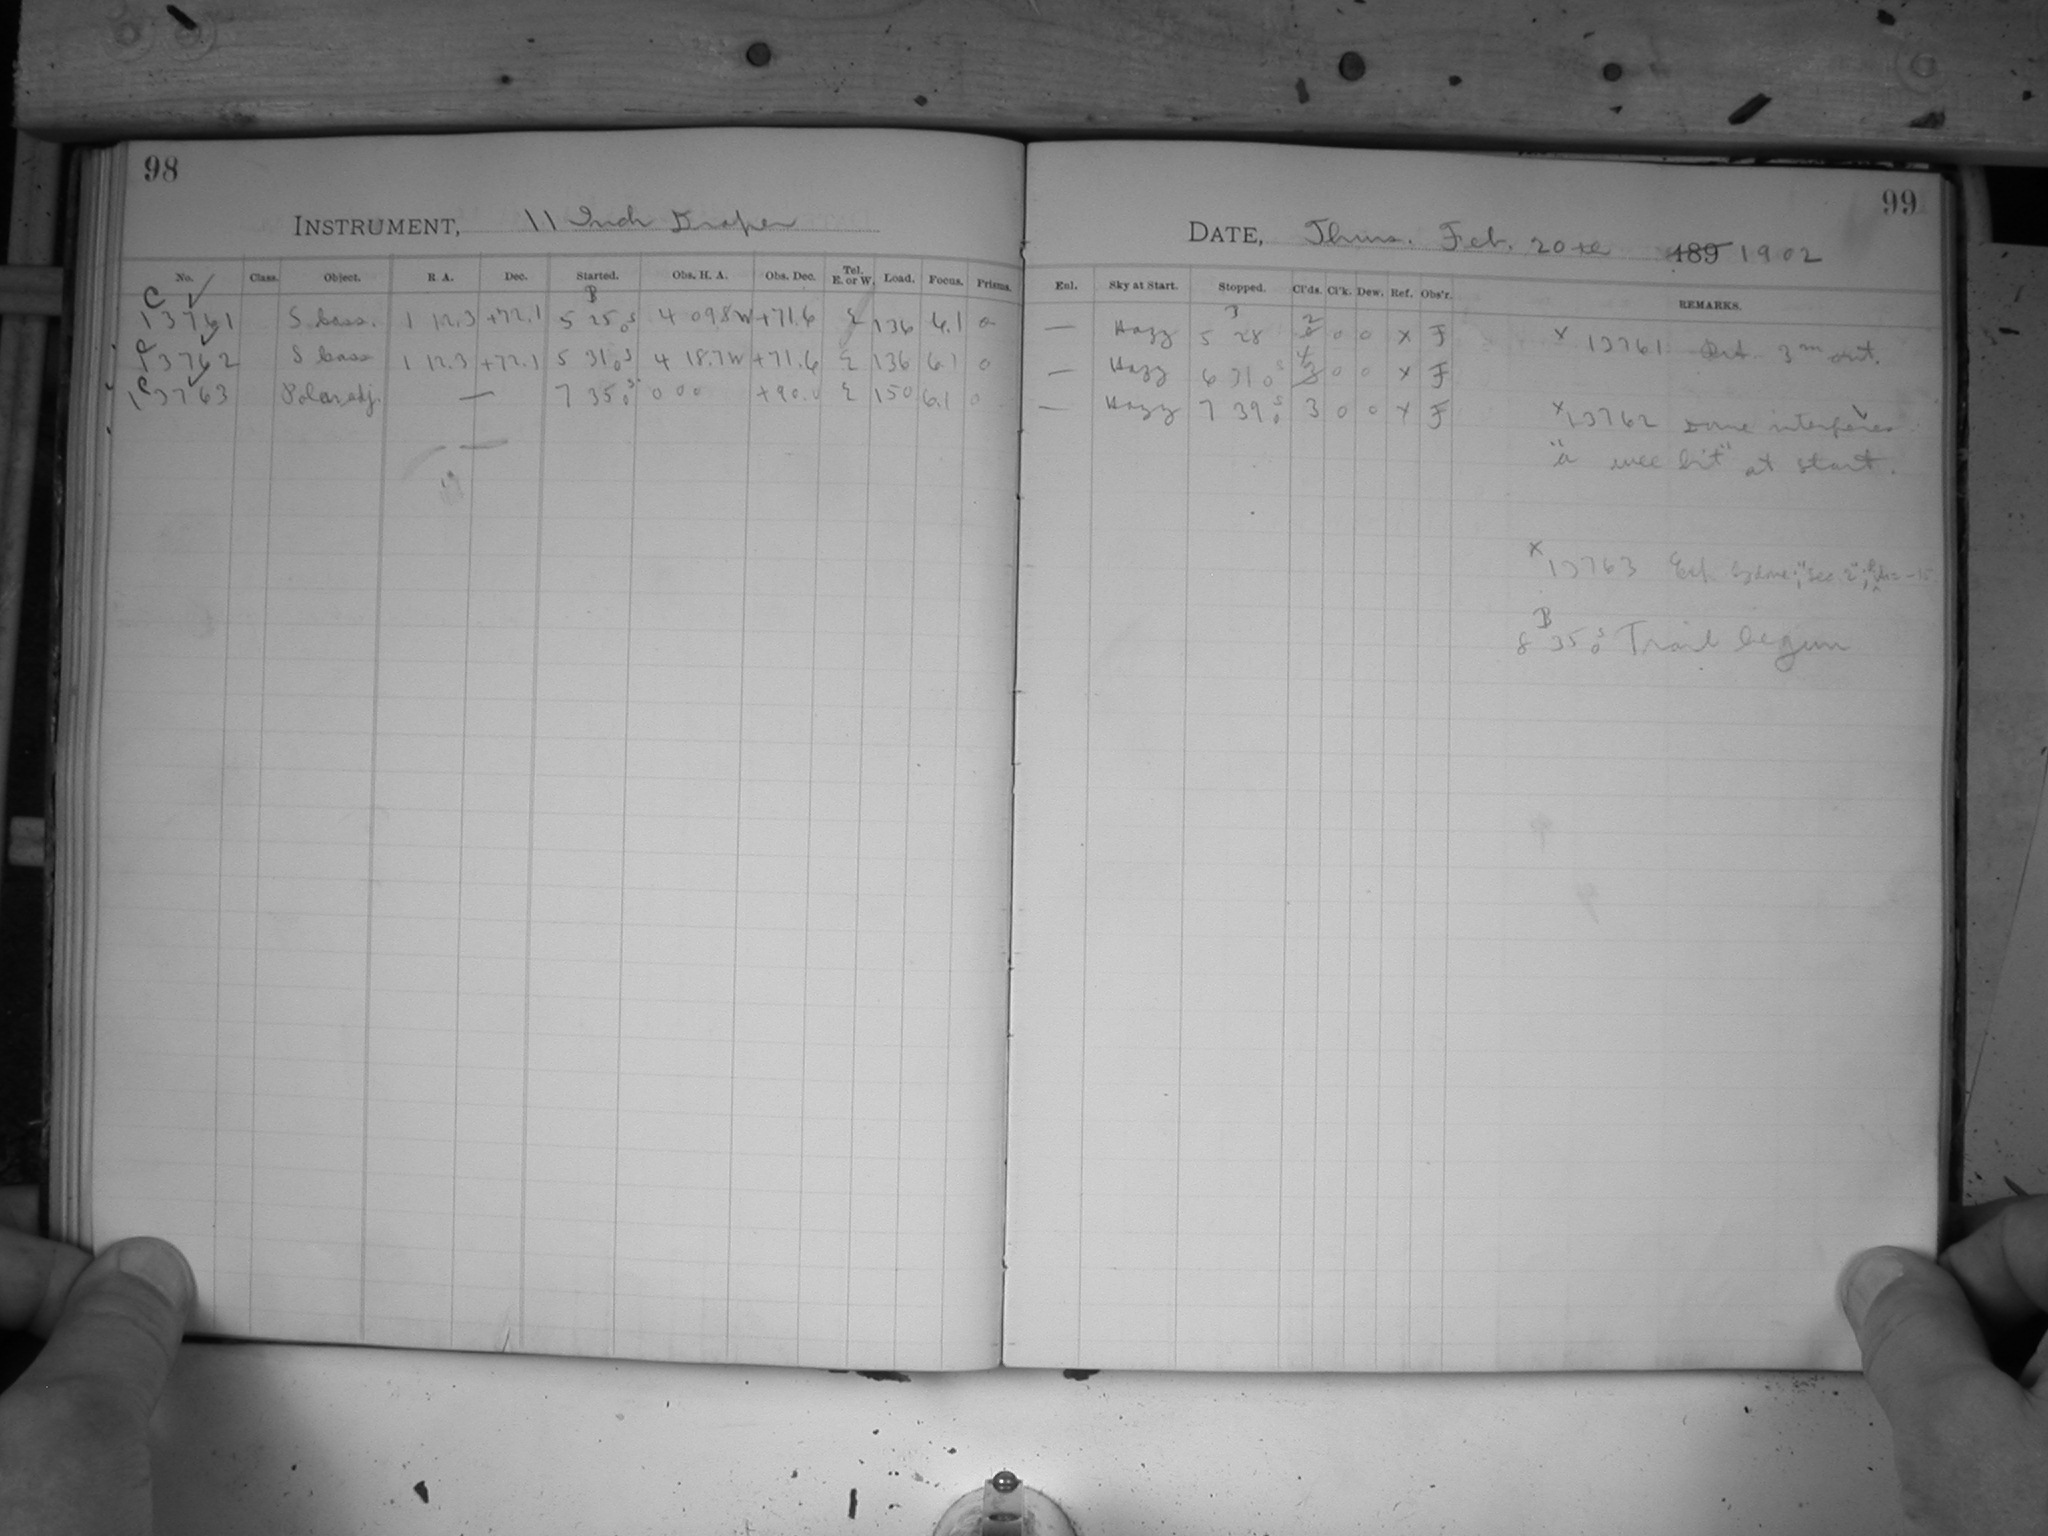 98
INSTRUMENT, 11 Inch Draper
No. Class. Object. R A. Dec. Started. Obs. H. A. Obs. Dec. Tel. E. or W. Load. Focus. Prisms.
B
C 13761 S Cass. 1 12.3 +72.1 5 25 0s 4 09.8W +71.6 E 136 6.1 0
C 13762 S Cass 1 12.3 +72.1 5 31 0s 4 18.7W +71.6 E 136 6.1 0
C 13763 Polar adj. — 7 35 0s 0 0 0 +90.0 E 150 6.1 0
99
DATE, Thurs. Feb. 20th 189 1902
Enl. Sky at Start. Stopped. Cl'ds. Cl'k. Dew. Ref. Obs'r. REMARKS.
— Hazy 5 28 2 0 0 x F
— Hazy 6 31 0s 0 0 x F
— Hazy 7 39 0s 3 0 0 x F
x 13761 3m out.
x 13762 some interferes
"a wee bit" at start.
x 13763 "Sec 2";
B
8 35 0s Trail begun